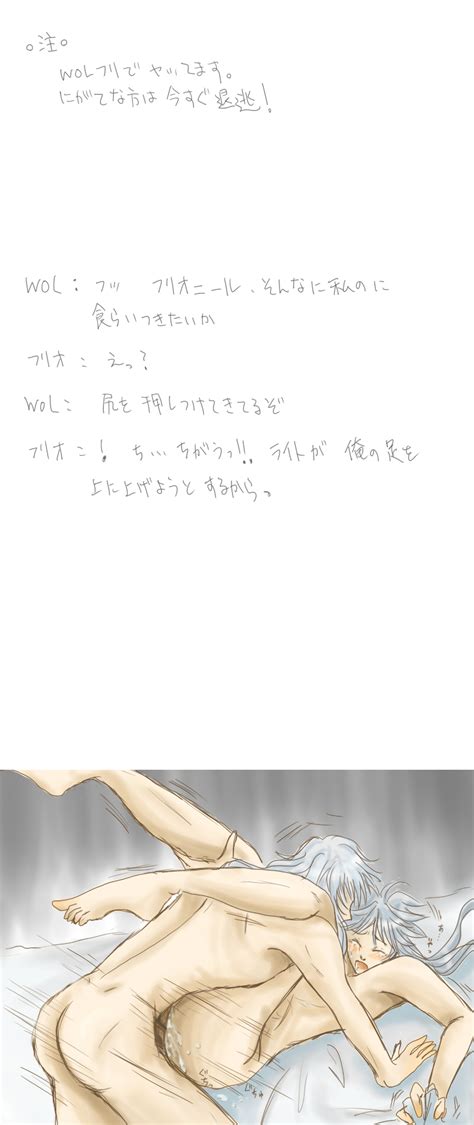 。注。
WOLフリで ヤッてます。
にがてな方は 今すぐ退逃!
WOL: フッ フリオニール、そんなに私のに
食らいつきたいか
フリオ: えっ?
WOL: 尻を押しつけてきてるぞ
フリオ:! ち…ちがうっ!! ライトが 俺の足を
上に上げようと するから。
ぐちっ
ぐちゅ